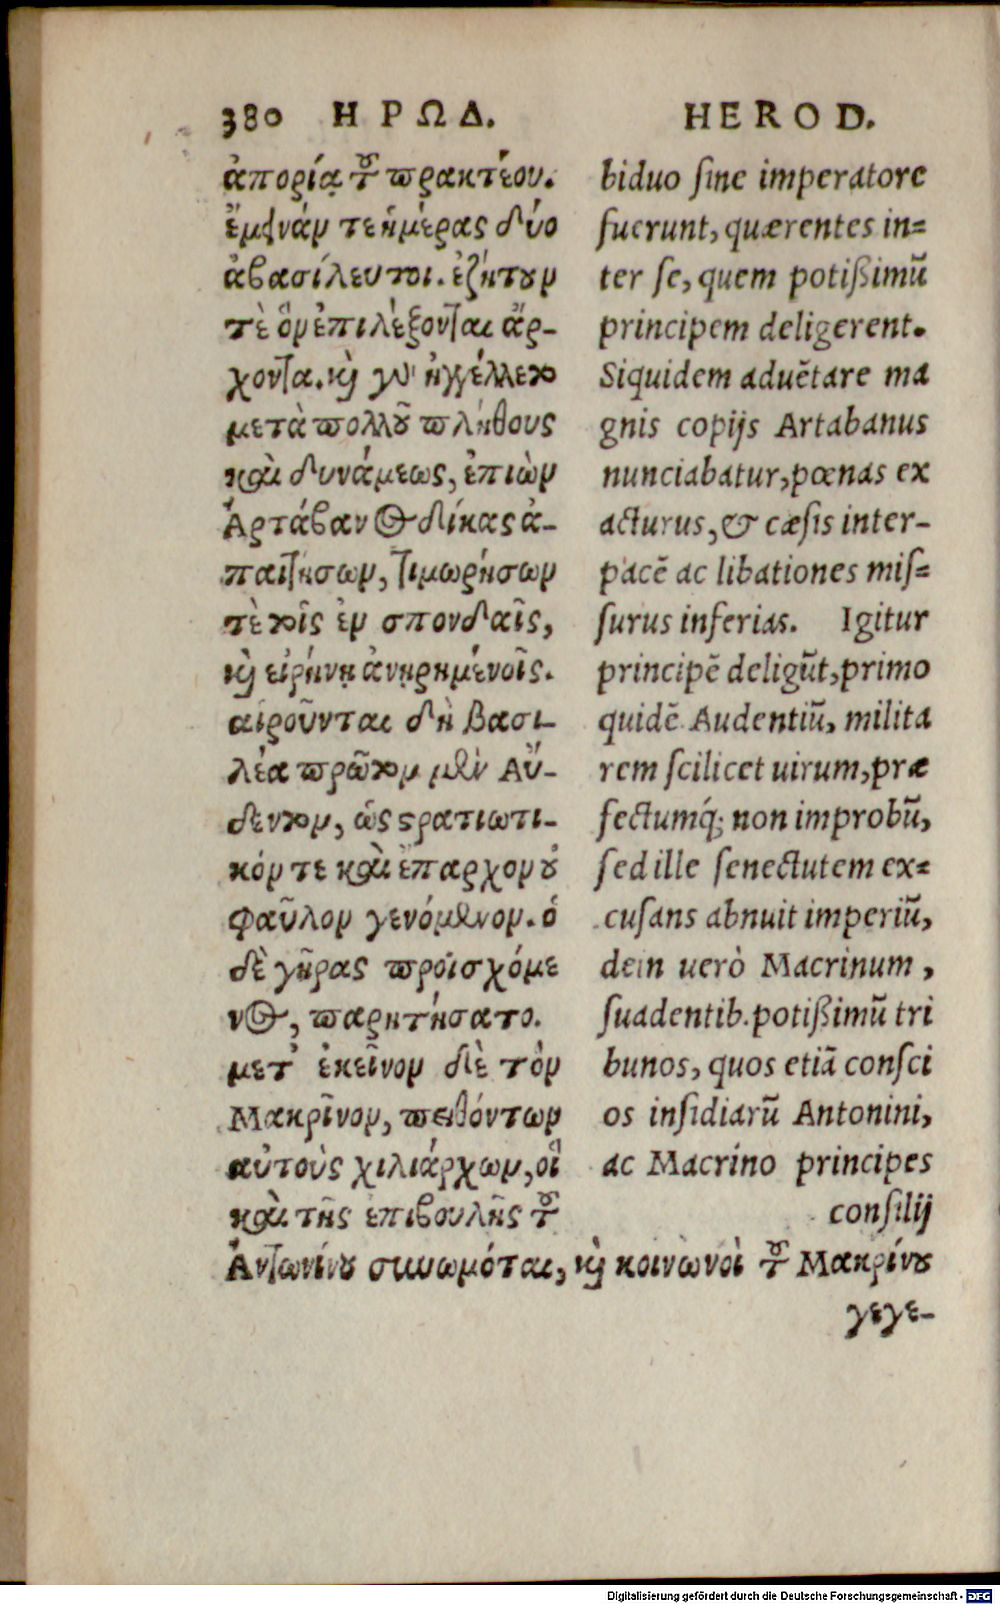 380 ΗΡΩΔ.
ἀπορίᾳ τοῦ πρακτέου.
ἔμεινάν τε ἡμέρας δύο
ἀβασίλευτοι. ἐζήτουν
τὲ ὃν ἐπιλέξονται ἄρ-
χοντα. καὶ γὰρ ἠγγέλλετο
μετὰ πολλοῦ πλήθους
καὶ δυνάμεως, ἐπιὼν
Ἀρτάβανος δίκας ἀ-
παιτήσων, τιμωρήσων
τὲ τοῖς ἐν σπονδαῖς,
καὶ εἰρήνῃ ἀνῃρημένοις.
αἱροῦνται δὴ βασι-
λέα πρῶτον μὲν Αὔ-
δεντον, ὡς στρατιωτι-
κόν τε καὶ ἔπαρχον οὐ
φαῦλον γενόμενον. ὁ
δὲ γῆρας προϊσχόμε
νος, παρῃτήσατο.
μετ᾽ ἐκεῖνον δὲ τὸν
Μακρῖνον, πειθόντων
αὐτοὺς χιλιάρχων, οἳ
καὶ τῆς ἐπιβουλῆς τοῦ
Ἀντωνίνου συνωμόται, καὶ κοινωνοὶ τοῦ Μακρίνου
γεγε-
HEROD.
biduo ſine imperatore
fuerunt, quærentes in=
ter ſe, quem potißimũ
principem deligerent.
Siquidem aduẽtare ma
gnis copijs Artabanus
nunciabatur, pœnas ex
acturus, & cæſis inter-
pacẽ ac libationes miſ=
ſurus inferias. Igitur
principẽ deligũt, primo
quidẽ Audentiũ, milita
rem ſcilicet uirum, præ
fectumq́; non improbũ,
ſed ille ſenectutem ex=
cuſans abnuit imperiũ,
dein uerò Macrinum,
ſuadentib. potißimũ tri
bunos, quos etiã conſci
os inſidiarũ Antonini,
ac Macrino principes
conſilij
Digitalisierung gefördert durch die Deutsche Forschungsgemeinschaft - DFG